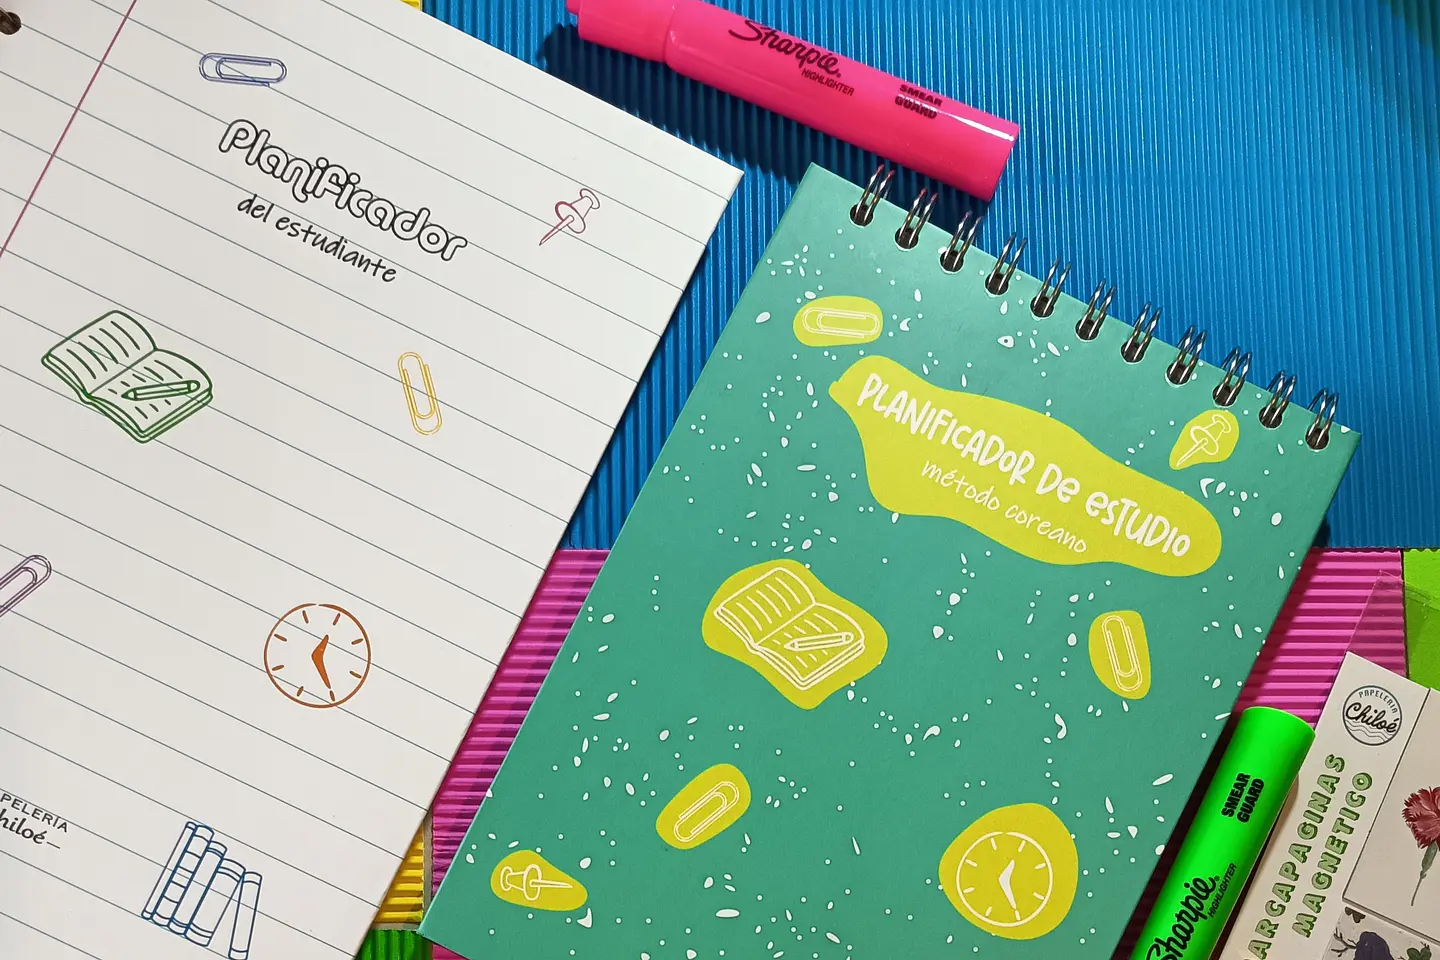 Planificador
del estudiante
Sharpie®
HIGHLIGHTER
SMEAR
GUARD
PLANIFICADOR DE ESTUDIO
método coreano
PAPELERIA
Chiloé
SMEAR
GUARD
Sharpie®
HIGHLIGHTER
ARCAPAGINAS
MAGNETICO
PELERÍA
hiloé